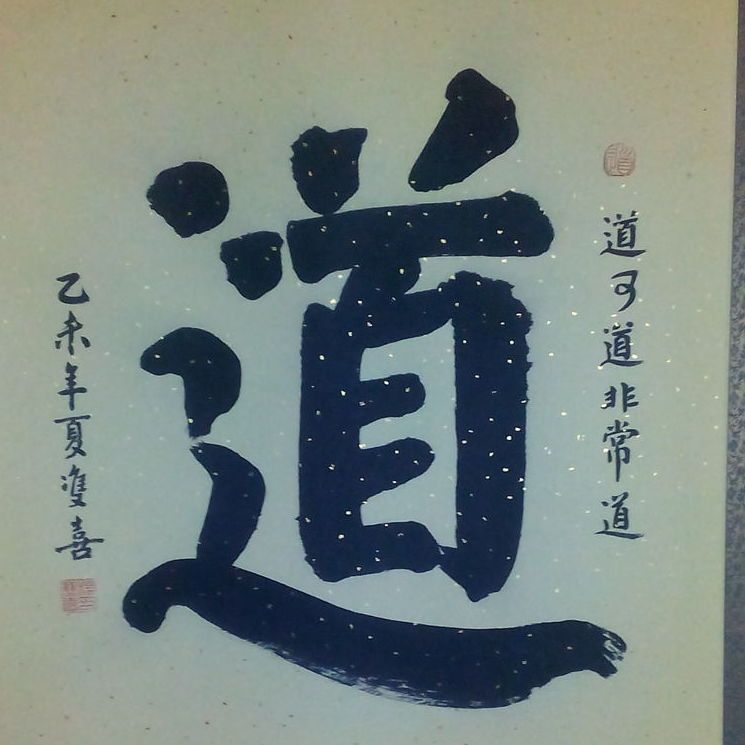 道可道非常道
道
乙未年夏双喜